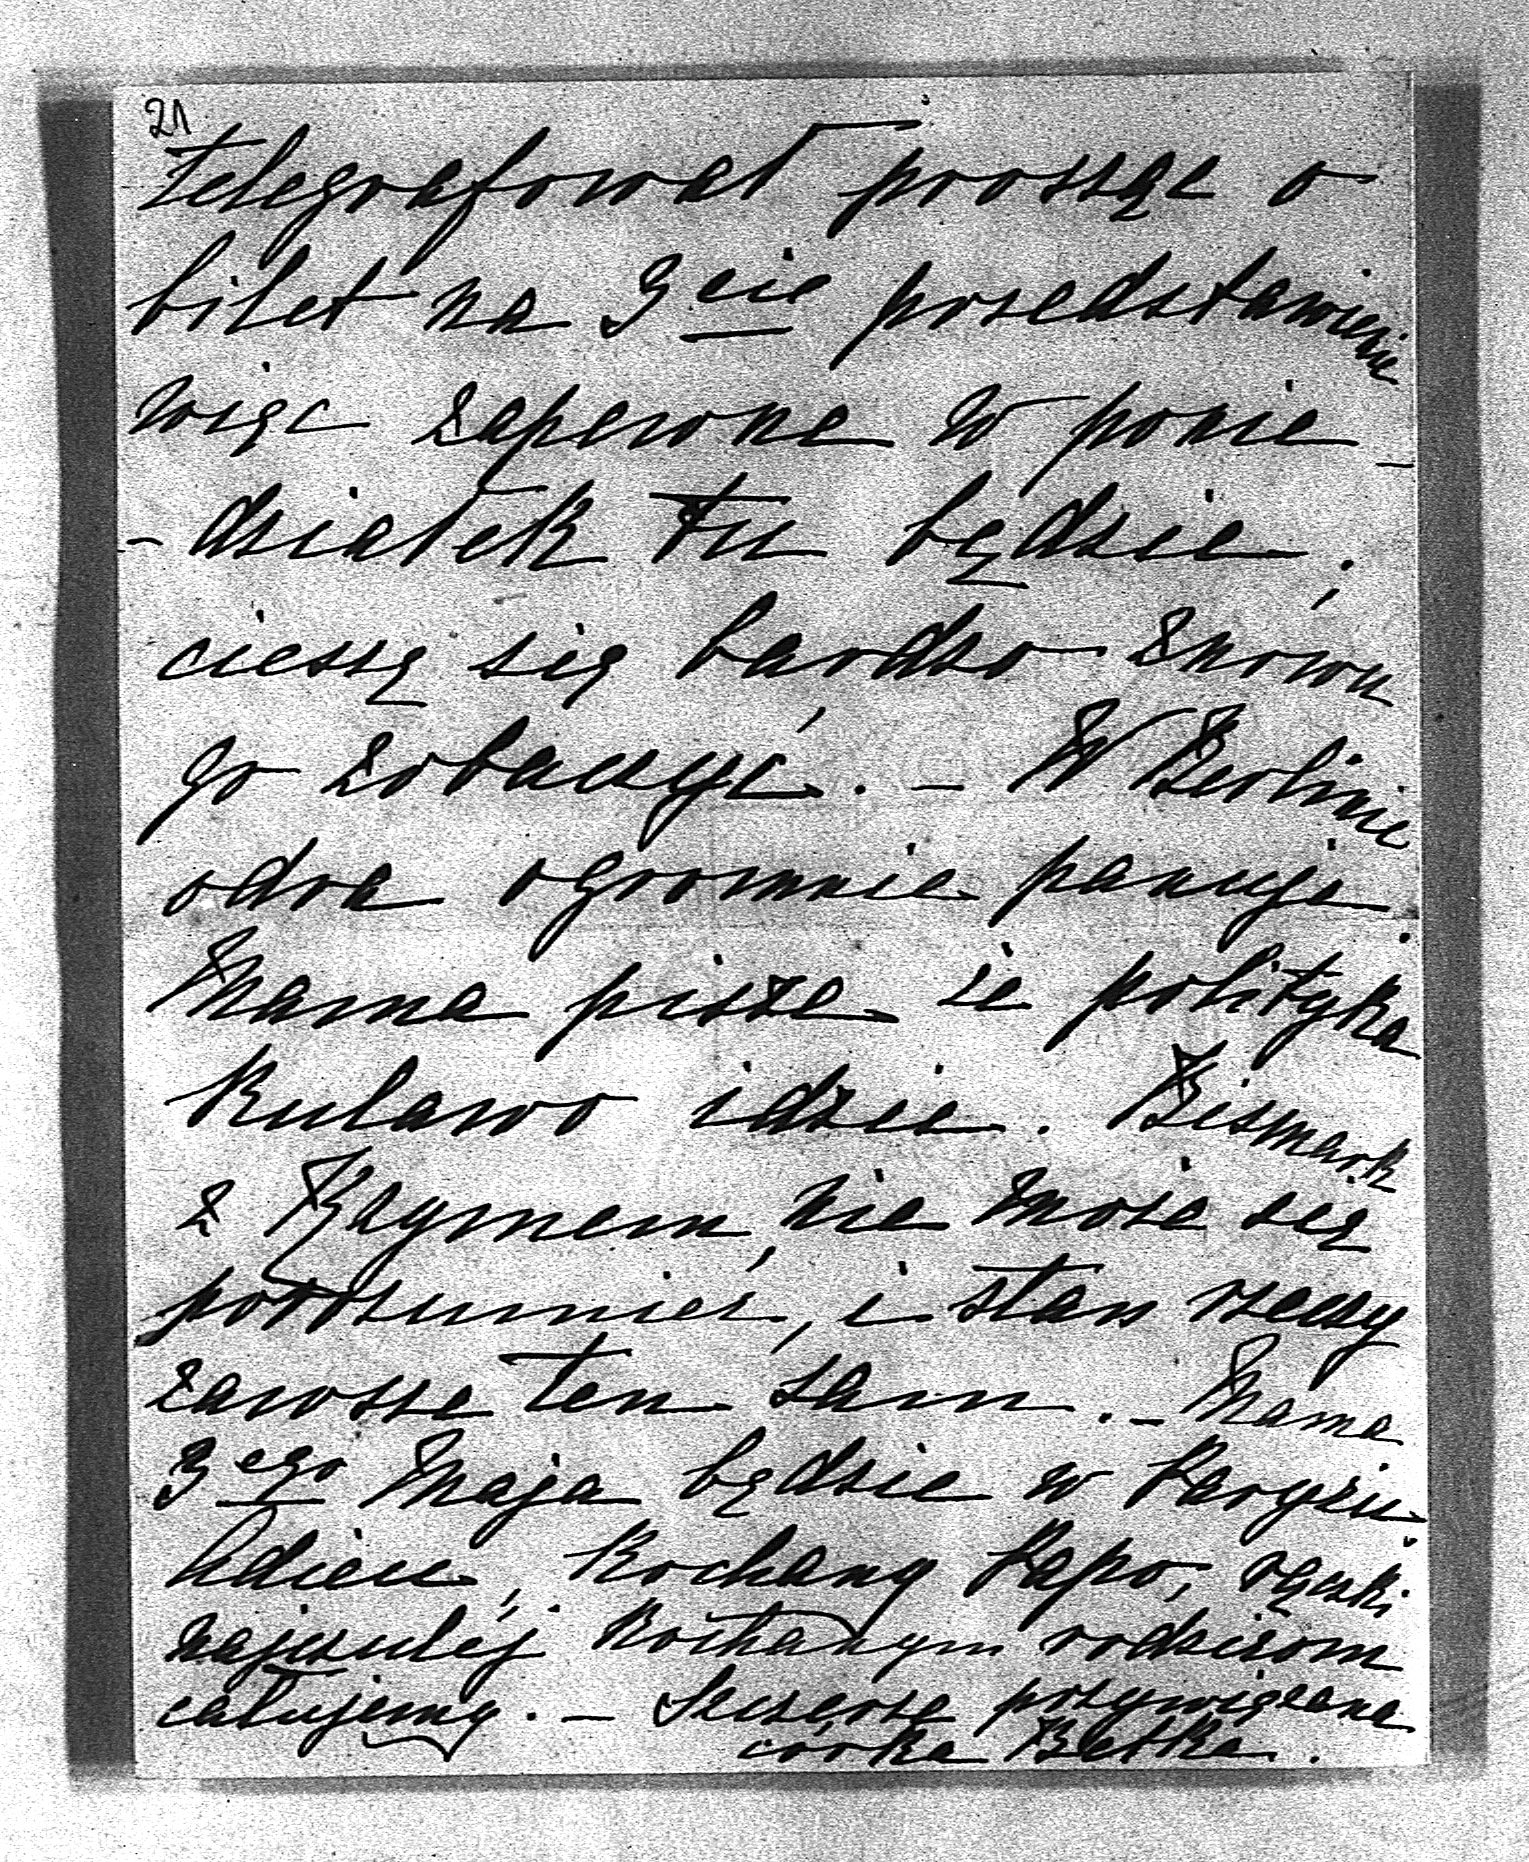 21
telegrafował prosząc o
bilet na 3cie przedstawienie
więc zapewne w ponie-
-działek tu będzie.
cieszę się bardzo znówu
go zobaczyć. – W Berlinie
odra ogromnie panuje.
Mama pisze że polityka
kulawo idzie. Bismark
z Rzymem, nie może się
porozumieć, i stan rzeczy
zawsze ten sam. – Mama
3ego Maja będzie w Paryżu.
Adieu, kochany Papo, rączki
najczulej kochanym rodzicom
całujemy. – Szczerze przywiązana
córka Betka.